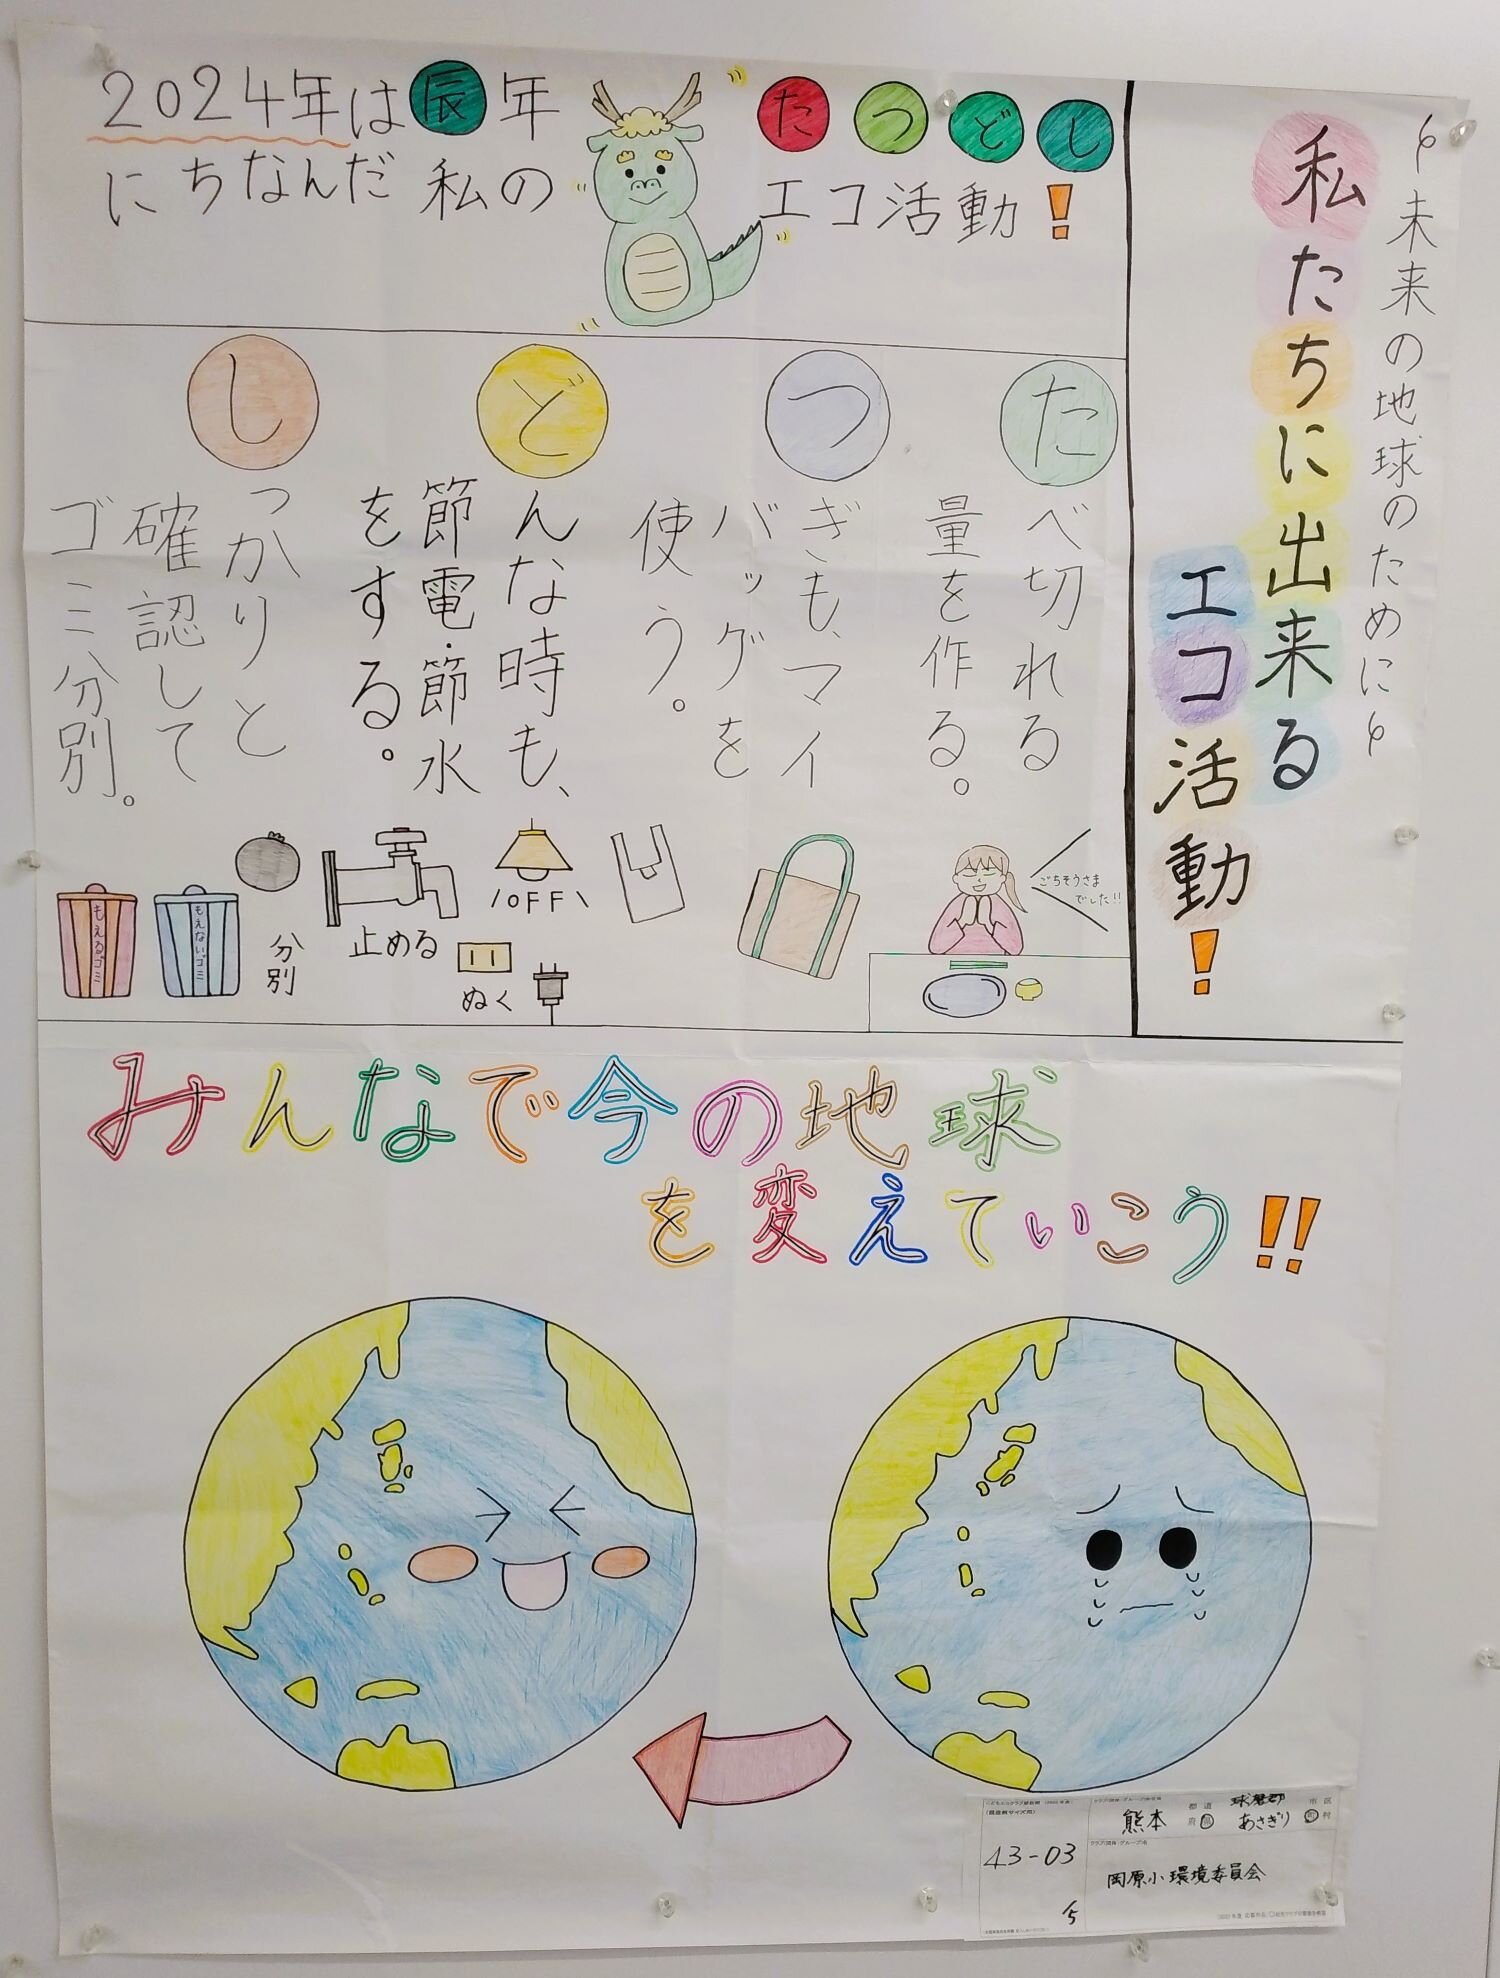 〜未来の地球のために〜
私たちに出来る
エコ活動!
2024年は辰年
にちなんだ私の
たつどし
エコ活動!
た
べ切れる
量を作る。
つ
ぎも、マイ
バッグを
使う。
ど
んな時も、
節電・節水
をする。
し
っかりと
確認して
ゴミ分別。
ごちそうさま
でした!!
\OFF/
止める
ぬく
分別
もえないゴミ
もえるゴミ
みんなで今の地球
を変えていこう!!
43-03
1/5
熊本
都 道
府 県
球磨郡
あさぎり
市 区
町 村
岡原小環境委員会